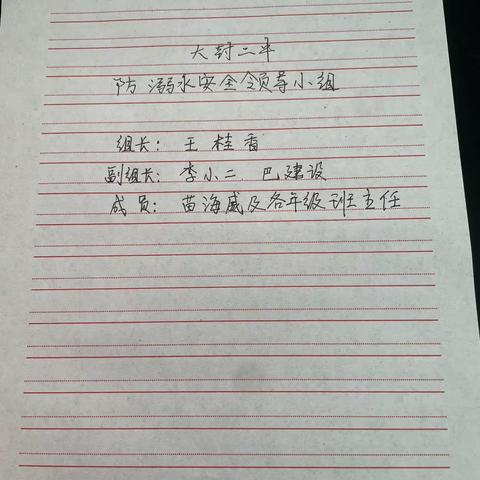 大封二中
防溺水安全领导小组
组长：王桂香
副组长：李小二 巴建设
成员：苗海威及各年级班主任